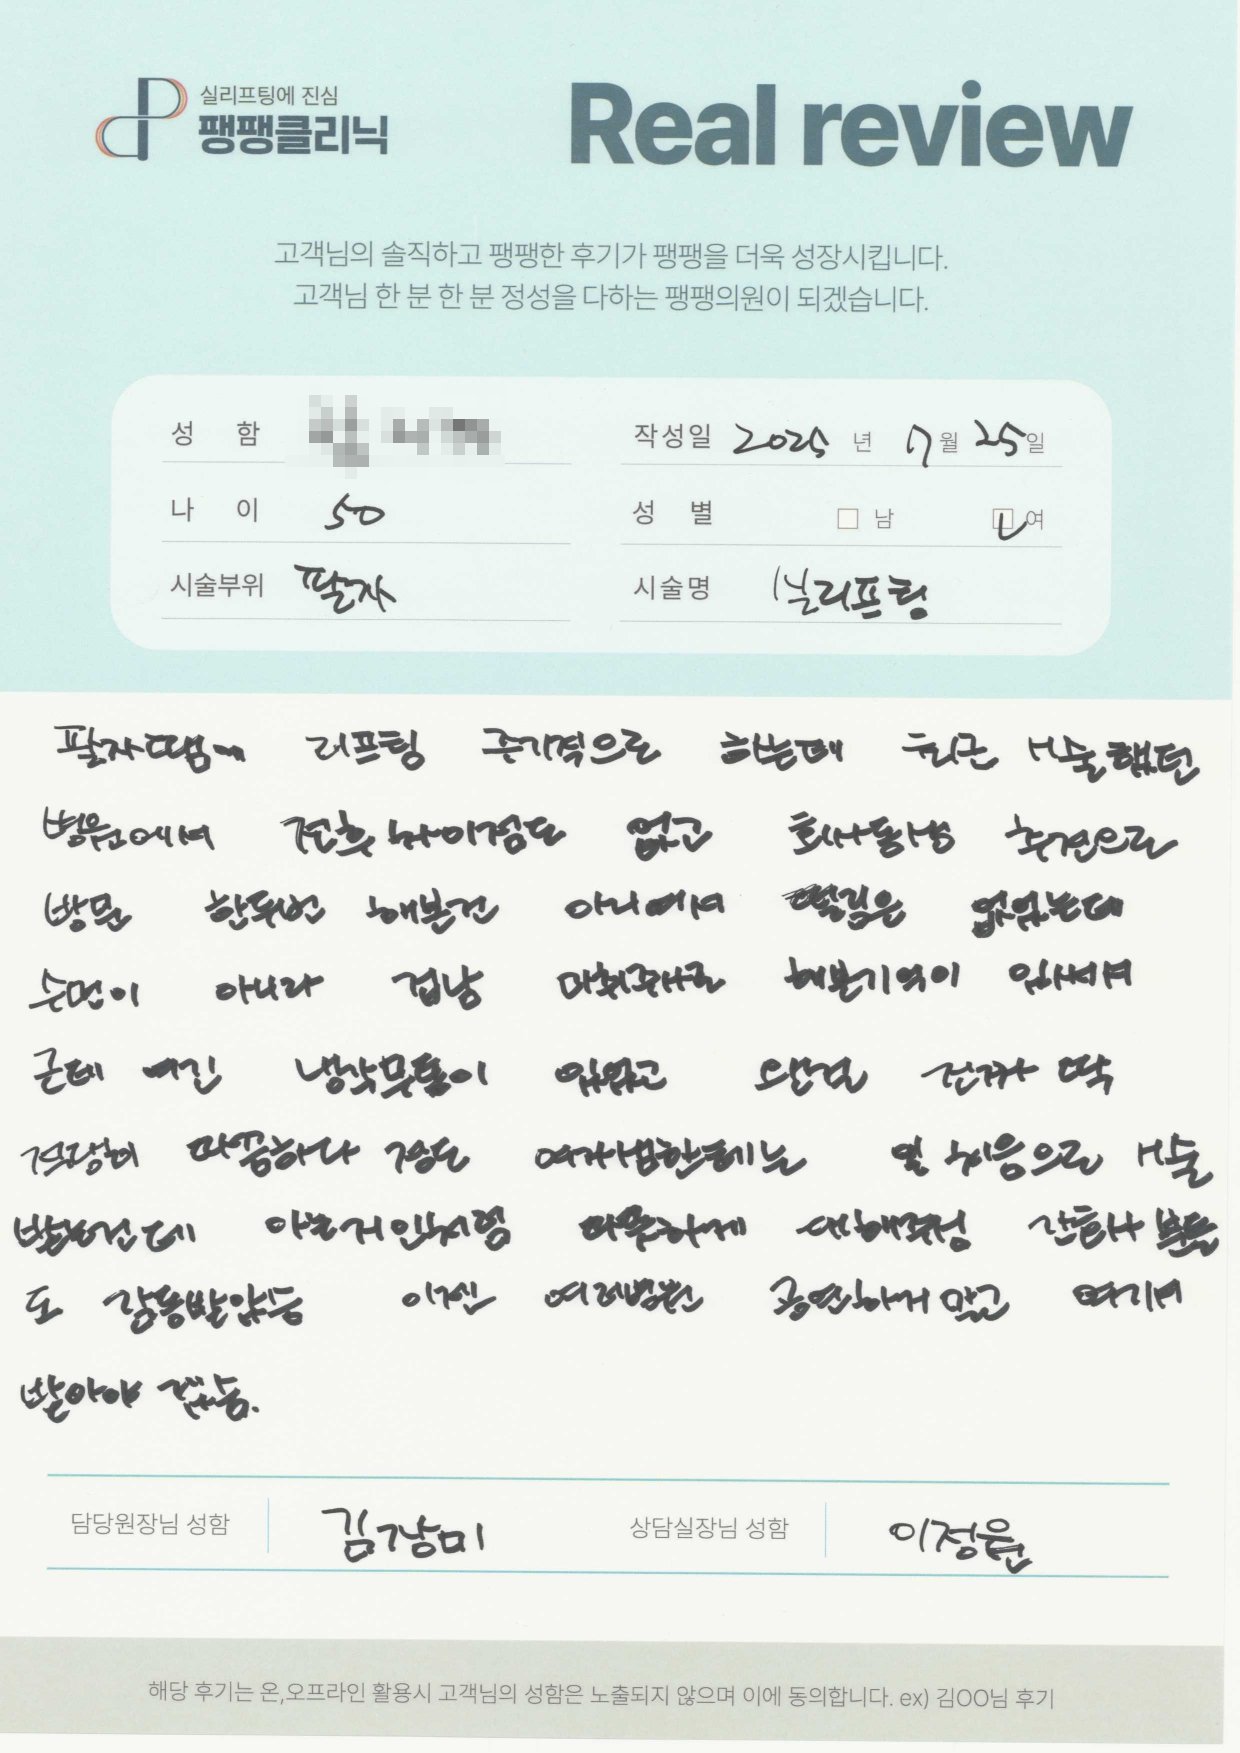 실리프팅에 진심
팽팽클리닉
Real review
고객님의 솔직하고 팽팽한 후기가 팽팽을 더욱 성장시킵니다.
고객님 한 분 한 분 정성을 다하는 팽팽의원이 되겠습니다.
성 함
작성일 2025 년 7 월 25 일
나 이 50
성 별 남 여
시술부위 팔자
시술명 실리프팅
팔자땜에 리프팅 주기적으로 하는데 최근 시술했던
병원에서 전후 차이점도 없고 회사동생 추천으로
방문 한두번 해본건 아니여서 떨림은 없었는데
수면이 아니라 겁남 마취주사로 해본기억이 있어서
근데 여긴 냉각무통이 있었고 원장님 진짜 딱
적당히 따끔하다 정도 여자사람한테는 첨으로 시술
받는건데 아는지인처럼 따뜻하게 대해주심 간호사분들
도 감동받았음 이젠 여러병원 공연하게 말고 여기서
받아야 겠음.
담당원장님 성함 김강미
상담실장님 성함 이정원
해당 후기는 온,오프라인 활용시 고객님의 성함은 노출되지 않으며 이에 동의합니다. ex) 김OO님 후기